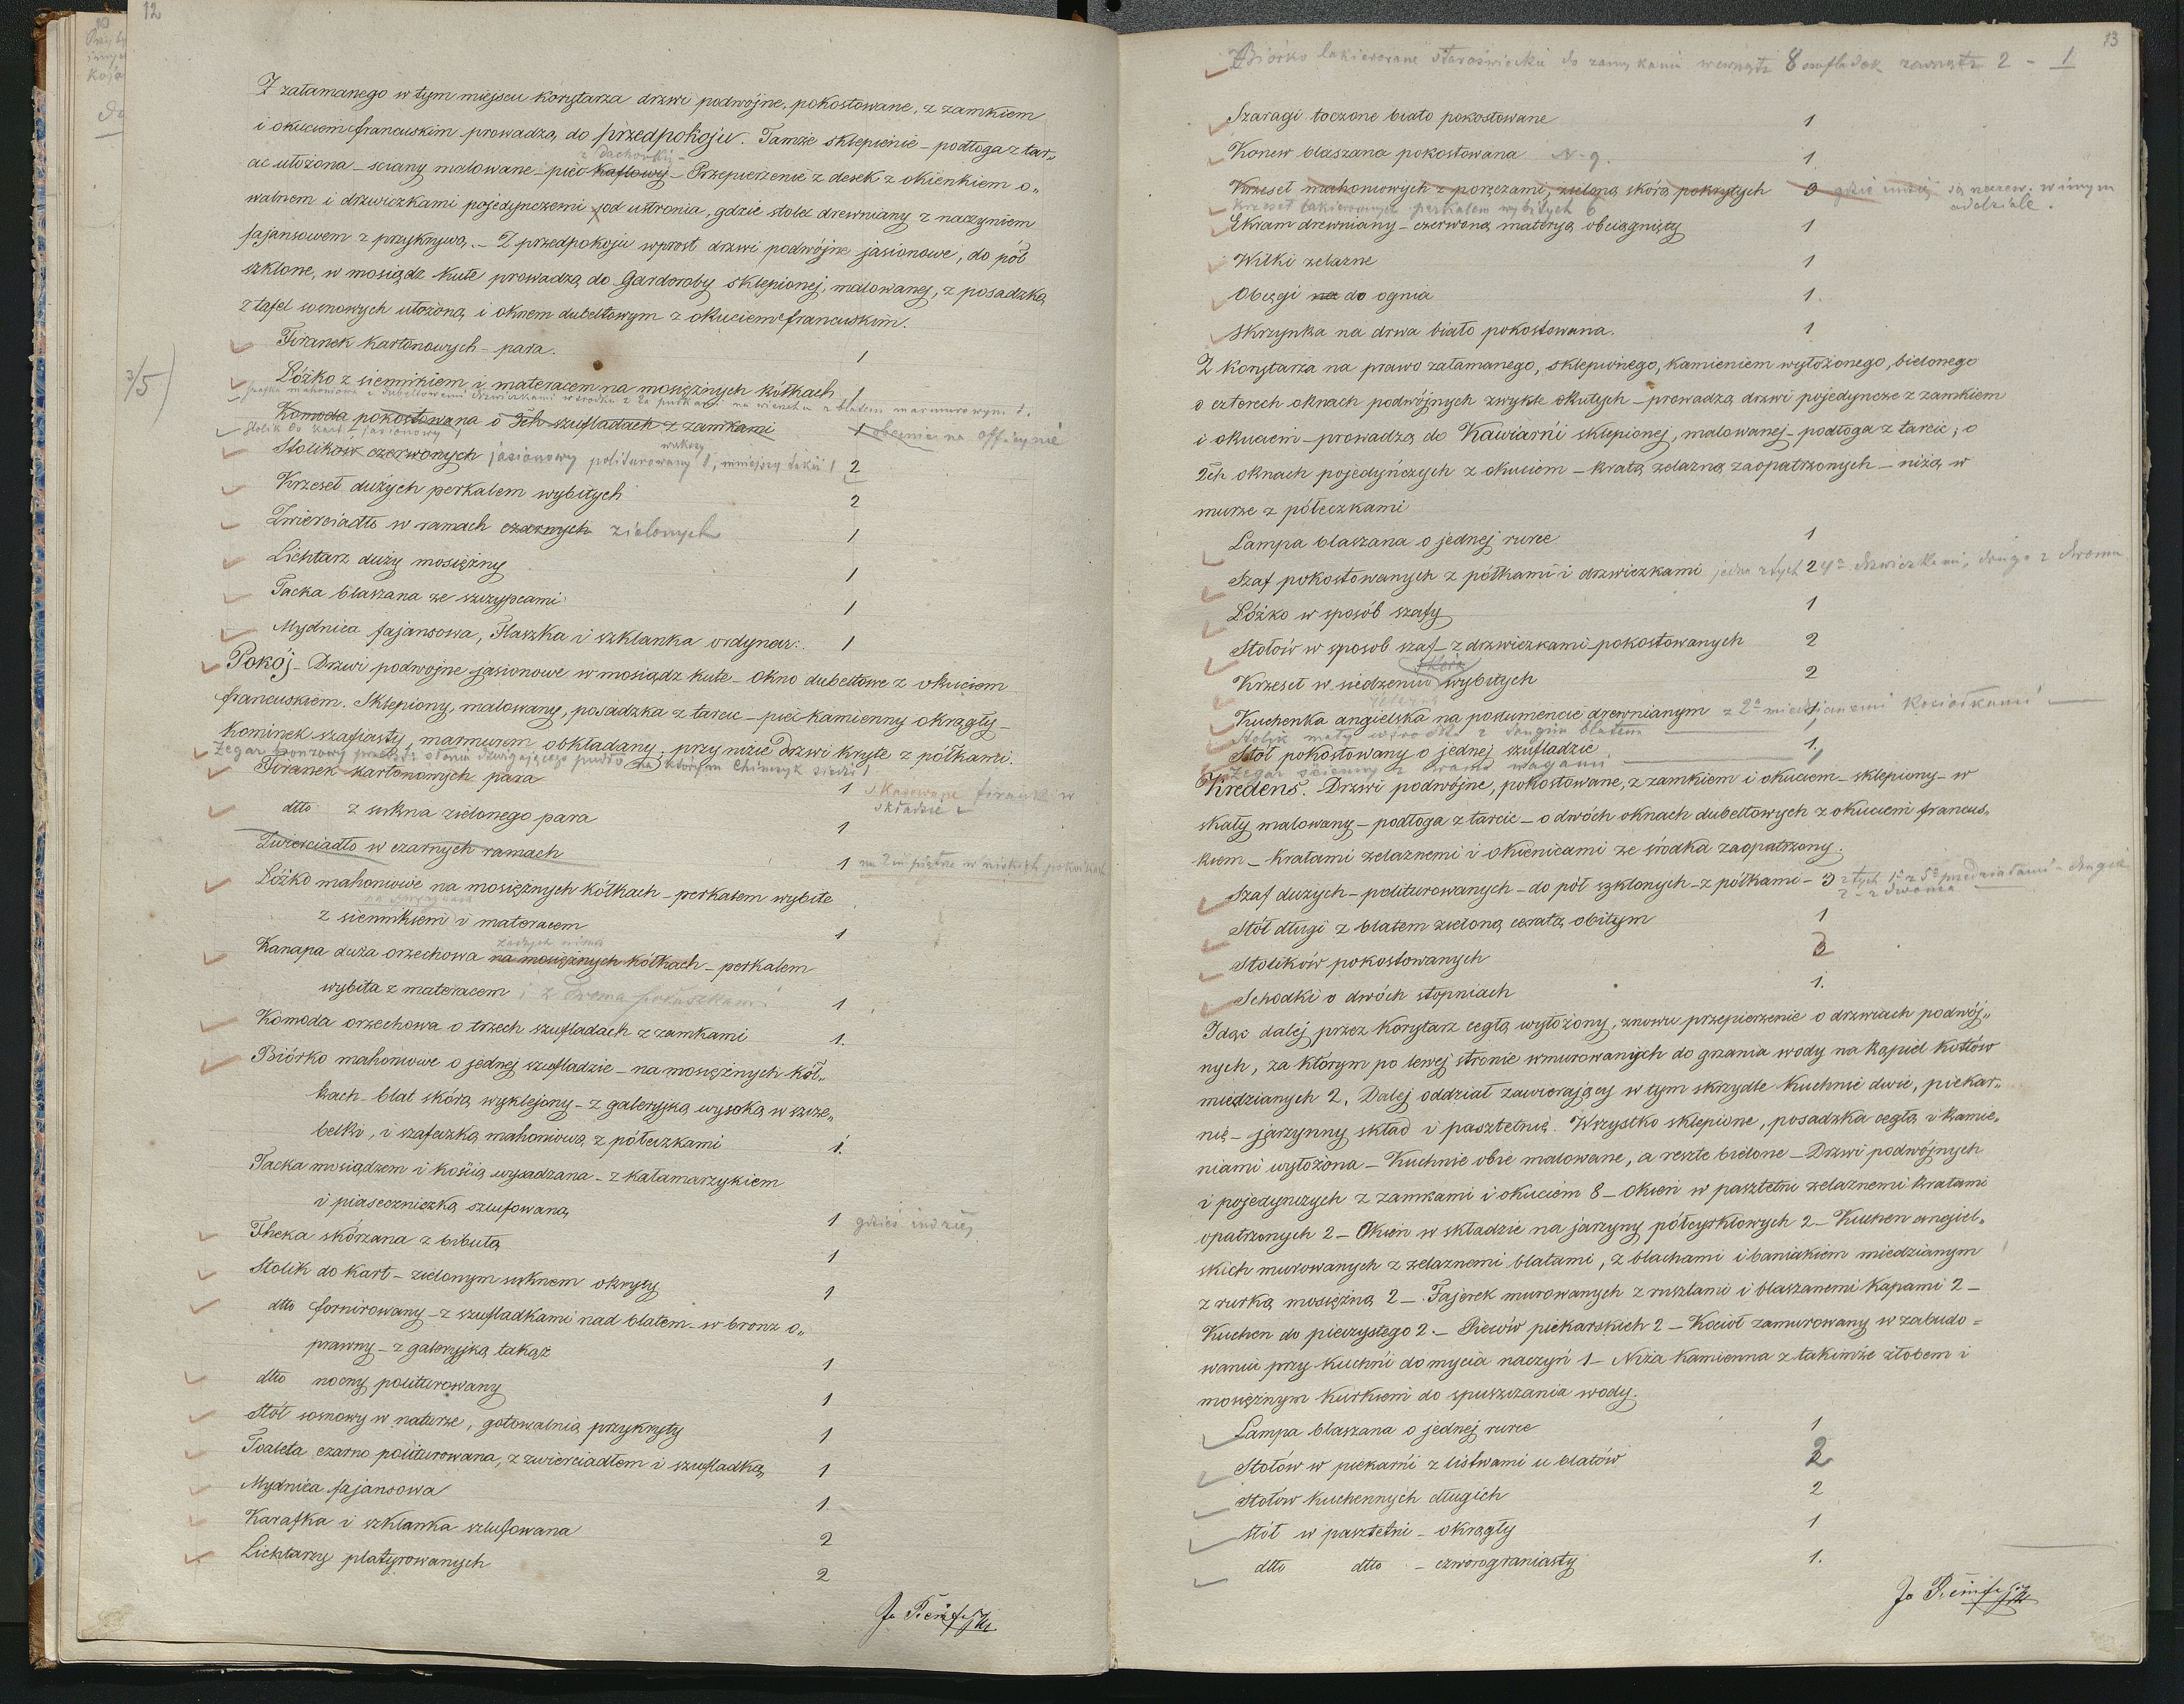 12
Z załamanego w tym miejscu korytarza drzwi podwójne, pokostowane, z zamkiem
i okuciem francuskim prowadzą do przedpokoju. Tamże sklepienie – podłoga z tar„
cic ułożona – sciany malowane – piec kaflowy – Przepierzenie z desek z okienkiem o„
z dachówki
walnem i drzwiczkami pojedynczemi od ustronia, gdzie stolec drewniany z naczyniem
fajansowem z przykrywą. – Z przedpokoju wprost drzwi podwójne jasionowe, do pół
szklone, w mosiądz kute prowadzą do Garderoby sklepionej, malowanej, z posadzką
z tafel sosnowych ułożoną i oknem dubeltowym z okuciem francuskim.
Firanek kartonowych – para. 1
3/5)
Łóżko z siennikiem i materacem na mosiężnych kółkach 1
szafka mahoniowa z dubeltowemi drzwiczkami w środku z 2a półkami na wierzchu z blatem marmurowym 1.
Komoda pokostowana o 3ch szufladach z zamkami 1 obecnie na officynie
Stolik do kart – jasionowy 1
Stolików czerwonych jasionowy politurowany większy 1, mniejszy taki 1 2
Krzeseł dużych perkalem wybitych 2
Zwierciadło w ramach czarnych zielonych 1
Lichtarz duży mosiężny 1
Tacka blaszana ze szczypcami 1
Mydnica fajansowa, Flaszka i szklanka ordynar: 1
Pokój – Drzwi podwojne jasionowe w mosiądz kute – Okno dubeltowe z okuciem
francuskiem. Sklepiony, malowany, posadzka z tarcic – piec kamienny okrągły –
Kominek szafiasty, marmurem obkładany; przy niżie drzwi kryte z półkami.
Zegar bronzowy przedst: słonia dzwigającego pudło na którym Chińczyk siedzi 1
Firanek kartonowych para 1 skasowane firanki w
składzie
dtto z sukna zielonego para 1
Zwierciadło w czarnych ramach 1 na 2m piętrze w niskich pokoikach
Łóżko mahoniowe na mosiężnych kółkach – perkalem wybite
na sprężynach
z siennikiem i materacem 1
Kanapa duża orzechowa na mosiężnych kółkach – perkalem
żadnych nima
wybita z materacem i z dwema poduszkami 1
Komoda orzechowa o trzech szufladach z zamkami 1.
Biórko mahoniowe o jednej szufladzie – na mosiężnych kół„
kach – blat skórą wyklejony – z galeryjką wysoką w szcze„
belki, i szafeczką mahoniową z półeczkami 1.
Tacka mosiądzem i kością wysadzana – z kałamarzykiem
i piaseczniczką szlufowaną 1 gdzieś indziej
Theka skórzana z bibułą 1
Stolik do kart – zielonym suknem okryty 1
dtto fornirowany – z szufladkami nad blatem – w bronz o„
prawny – z galeryjką takąż 1
dtto nocny politurowany 1
Stół sosnowy w naturze, gotowalnią przykryty 1
Toaleta czarno politurowana, z zwierciadłem i szufladką 1
Mydnica fajansowa 1.
Karafka i szklanka szlufowana 2
Lichtarzy platyrowanych 2
13
Biórko lakierowane staroświeckie do zamykania wewnątrz 8 szufladek zewnątrz 2 – 1
Szaragi toczone biało pokostowane 1
Konew blaszana pokostowana N–9. 1
Krzeseł mahoniowych z poręczami, zieloną skórą pokrytych 3 gdzie indziej są narzew. w innym
oddziale.
Krzeseł lakierowanych perkalem wybitych 6
Ekram drewniany – czerwoną materyą obciągnięty 1
Wilki żelazne 1
Obcęgi na do ognia 1.
Skrzynka na drwa biało pokostowana. 1
Z korytarza na prawo załamanego, sklepionego, kamieniem wyłożonego, bielonego
o czterech oknach podwójnych zwykle okutych – prowadzą drzwi pojedyncze z zamkiem
i okuciem – prowadzą do Kawiarni sklepionej, malowanej – podłoga z tarcic; o
2ch oknach pojedyńczych z okuciem – kratą żelazną zaopatrzonych – niżą w
murze z półeczkami
Lampa blaszana o jednej rurce 1
Szaf pokostowanych z półkami i drzwiczkami jedna z tych 2 4a drzwiczkami, druga z dwoma
Łóżko w sposób szafy 1
Stołów w sposob szaf – z drzwiczkami pokostowanych 2
Krzeseł w siedzeniu skórą wybitych 2
Kuchenka angielska na postumencie drewnianym z 2a miedzianemi kociołkami 1
Stolik mały w środku z drugim blatem
Stół pokostowany o jednej szufladzie 1.
Zegar ścienny z dwoma wagami 1
Kredens. Drzwi podwójne, pokostowane, z zamkiem i okuciem – sklepiony – w
skały malowany – podłoga z tarcic – o dwóch oknach dubeltowych z okuciem francus„
kiem – kratami żelaznemi i okienicami ze środka zaopatrzony.
Szaf dużych – politurowanych – do pół szklonych – z półkami – 3 z tych 1a z 5a przedziałami – drugie
2 – z dwoma
Stół długi z blatem zieloną ceratą obitym 1
Stolików pokostowanych 3
Schodki o dwóch stopniach 1.
Idąc dalej przez korytarz cegłą wyłożony, znowu przepierzenie o drzwiach podwój„
nych, za którym po lewej stronie wmurowanych do grzania wody na kąpiel kotłów
miedzianych 2. Dalej oddział zawierający w tym skrzydle kuchnie dwie, piekar„
nię – jarzynny skład i pasztetnię. Wszystko sklepione, posadzka cegłą i kamie„
niami wyłożona – Kuchnie obie malowane, a reszte bielone – Drzwi podwójnych
i pojedynczych z zamkami i okuciem 8 – Okien w pasztetni żelaznemi kratami
opatrzonych 2 – Okien w składzie na jarzyny półcyrklowych 2 – Kuchen angiel„
skich murowanych z żelaznemi blatami, z blachami i baniakiem miedzianym
z rurką mosiężną 2 – Fajerek murowanych z rusztami i blaszanemi kapami 2 –
Kuchen do pieczystego 2. – Pieców piekarskich 2 – Kocioł zamurowany w zabudo=
waniu przy kuchni do mycia naczyń 1 – Niża kamienna z takimże żłobem i
mosiężnym kurkiem do spuszczania wody.
Lampa blaszana o jednej rurce 1
Stołów w piekarni z listwami u blatów 2
Stołow kuchennych długich 2
Stół w pasztetni – okrągły 1
dtto dtto – czworograniasty 1.